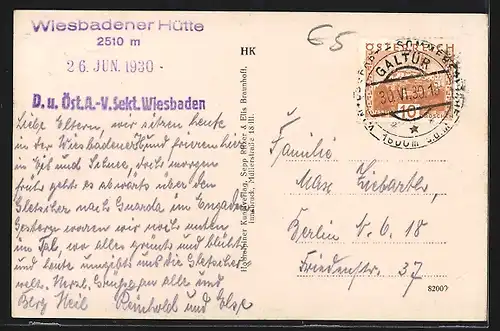 Wiesbadener Hütte
2510 m
26. JUN. 1930
D. u. Öst. A.-V. Sekt. Wiesbaden
HK
65
ÖSTERREICH
GALTÜR
30.VI.30.18
10
1600m
Liebe Eltern, wir sitzen heute
in der Wiesbadener und frieren hier
in Eis und Schnee, doch morgen
früh geht es abwärts über den
Gletscher nach Guarda im Engadin
Gestern waren wir noch unten
im Tal, wo alles grünt und blüht
und heute umgibt uns die Gletscher-
welt. Herzl. Grüße an alle und
Berg Heil Reinhold und Else
Hochalpiner Kunstverlag, Sepp & Elis Braunhoff,
Innsbruck, Müllerstraße 18 III.
Familie
Max Liebarthr,
Berlin N. O. 18
Friedenstr. 37
82000